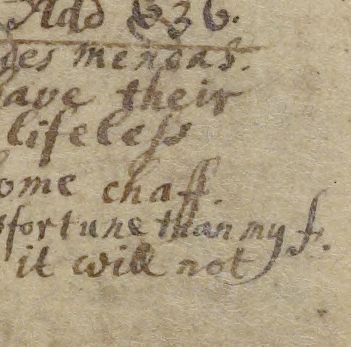 Add 636.
ges mendas.
ave their
lifeless
ome chaff.
sfortune than my f.
it will not